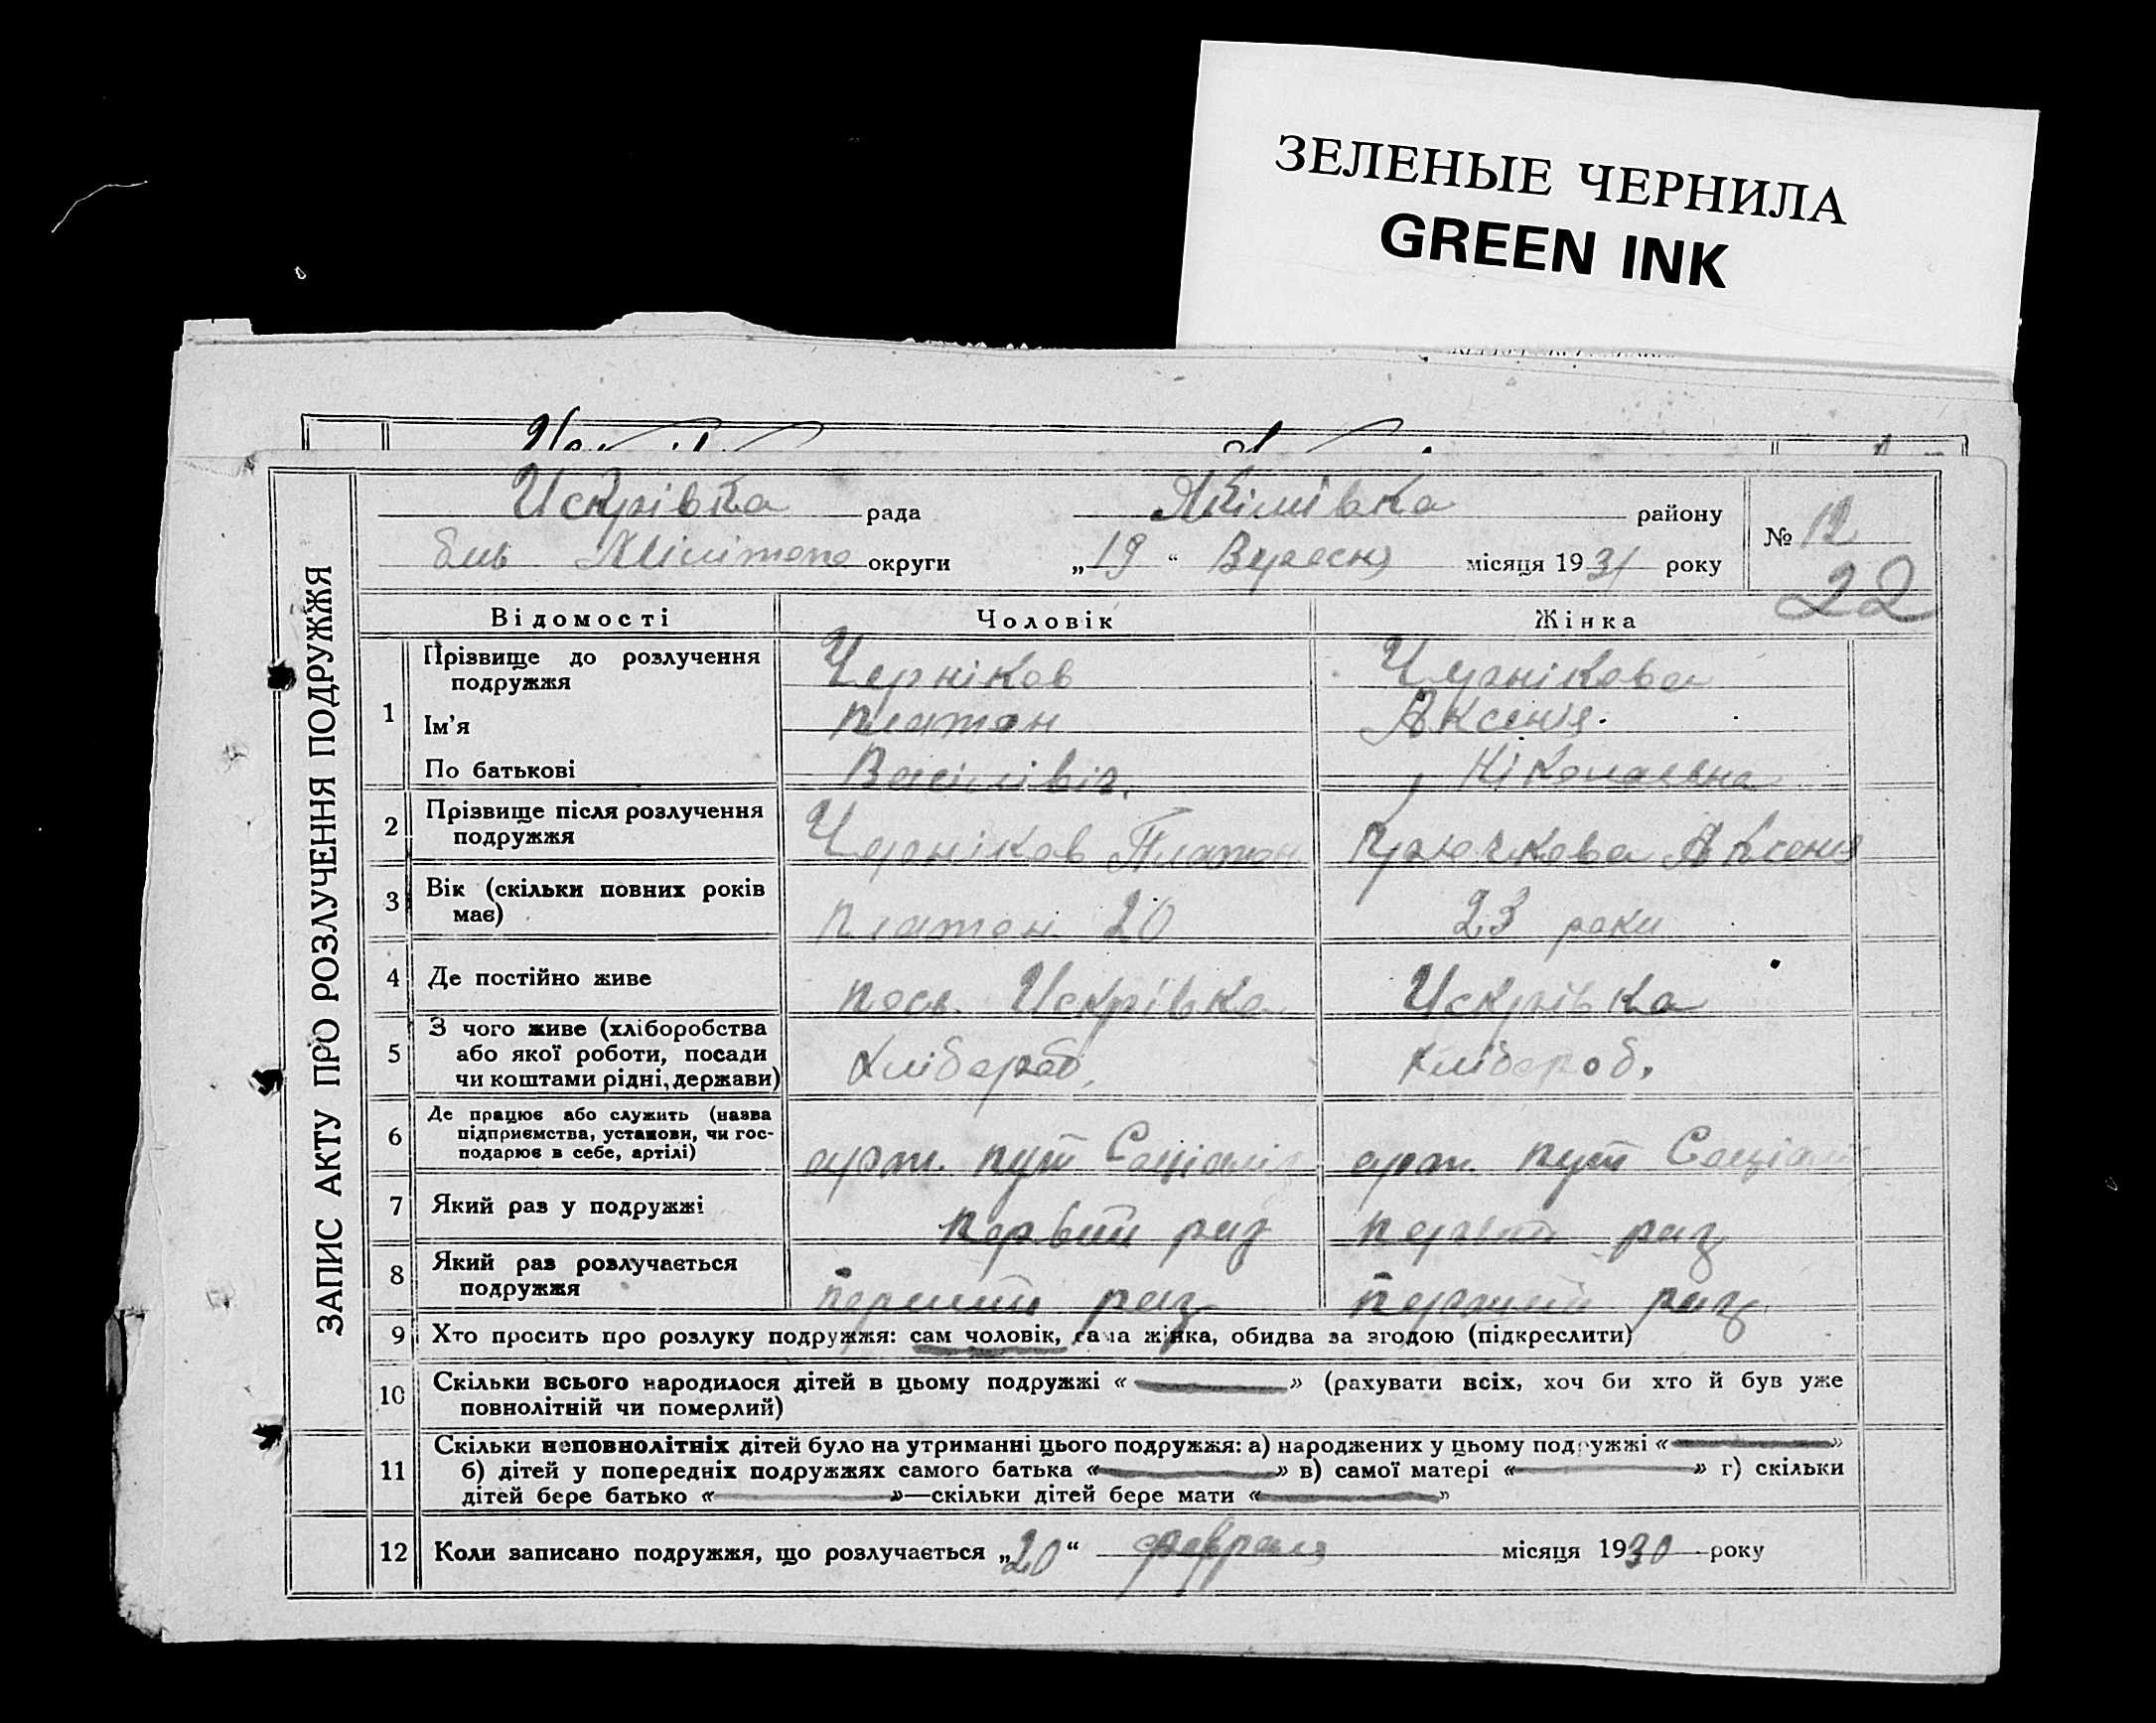 ЗЕЛЕНЫЕ ЧЕРНИЛА
GREEN INK
Искрівка рада Якімівка району
округи „19“ Вересня місяця 1931 року
№ 12
22
ЗАПИС АКТУ ПРО РОЗЛУЧЕННЯ ПОДРУЖЖЯ
Відомості Чоловік Жінка
1 Прізвище до розлучення подружжя Черніков Чернікова
Ім’я Платон Аксенія.
По батькові Васілівіч. Ніколаевна
2 Прізвище після розлучення подружжя Черніков Платон Крючкова Аксения
3 Вік (скільки повних років має) Платон 20 23 роки
4 Де постійно живе посел. Искрівка Искрівка
5 З чого живе (хліборобства або якої роботи, посади чи коштами рідні, держави) Хлібороб. Хлібороб.
6 Де працює або служить (назва підприємства, установи, чи господарює в себе, артілі) арт. пут Соціаліз арт. пут Соціаліз
7 Який раз у подружжі первий раз первий раз
8 Який раз розлучається подружжя перший раз перший раз
9 Хто просить про розлуку подружжя: сам чоловік, сама жінка, обидва за згодою (підкреслити)
10 Скільки всього народилося дітей в цьому подружжі «—» (рахувати всіх, хоч би хто й був уже
повнолітній чи померлий)
11 Скільки неповнолітніх дітей було на утриманні цього подружжя: а) народжених у цьому подружжі «—»
б) дітей у попередніх подружжях самого батька «—» в) самої матері «—» г) скільки
дітей бере батько «—»—скільки дітей бере мати «—»
12 Коли записано подружжя, що розлучається „20“ февраля місяця 1930 року